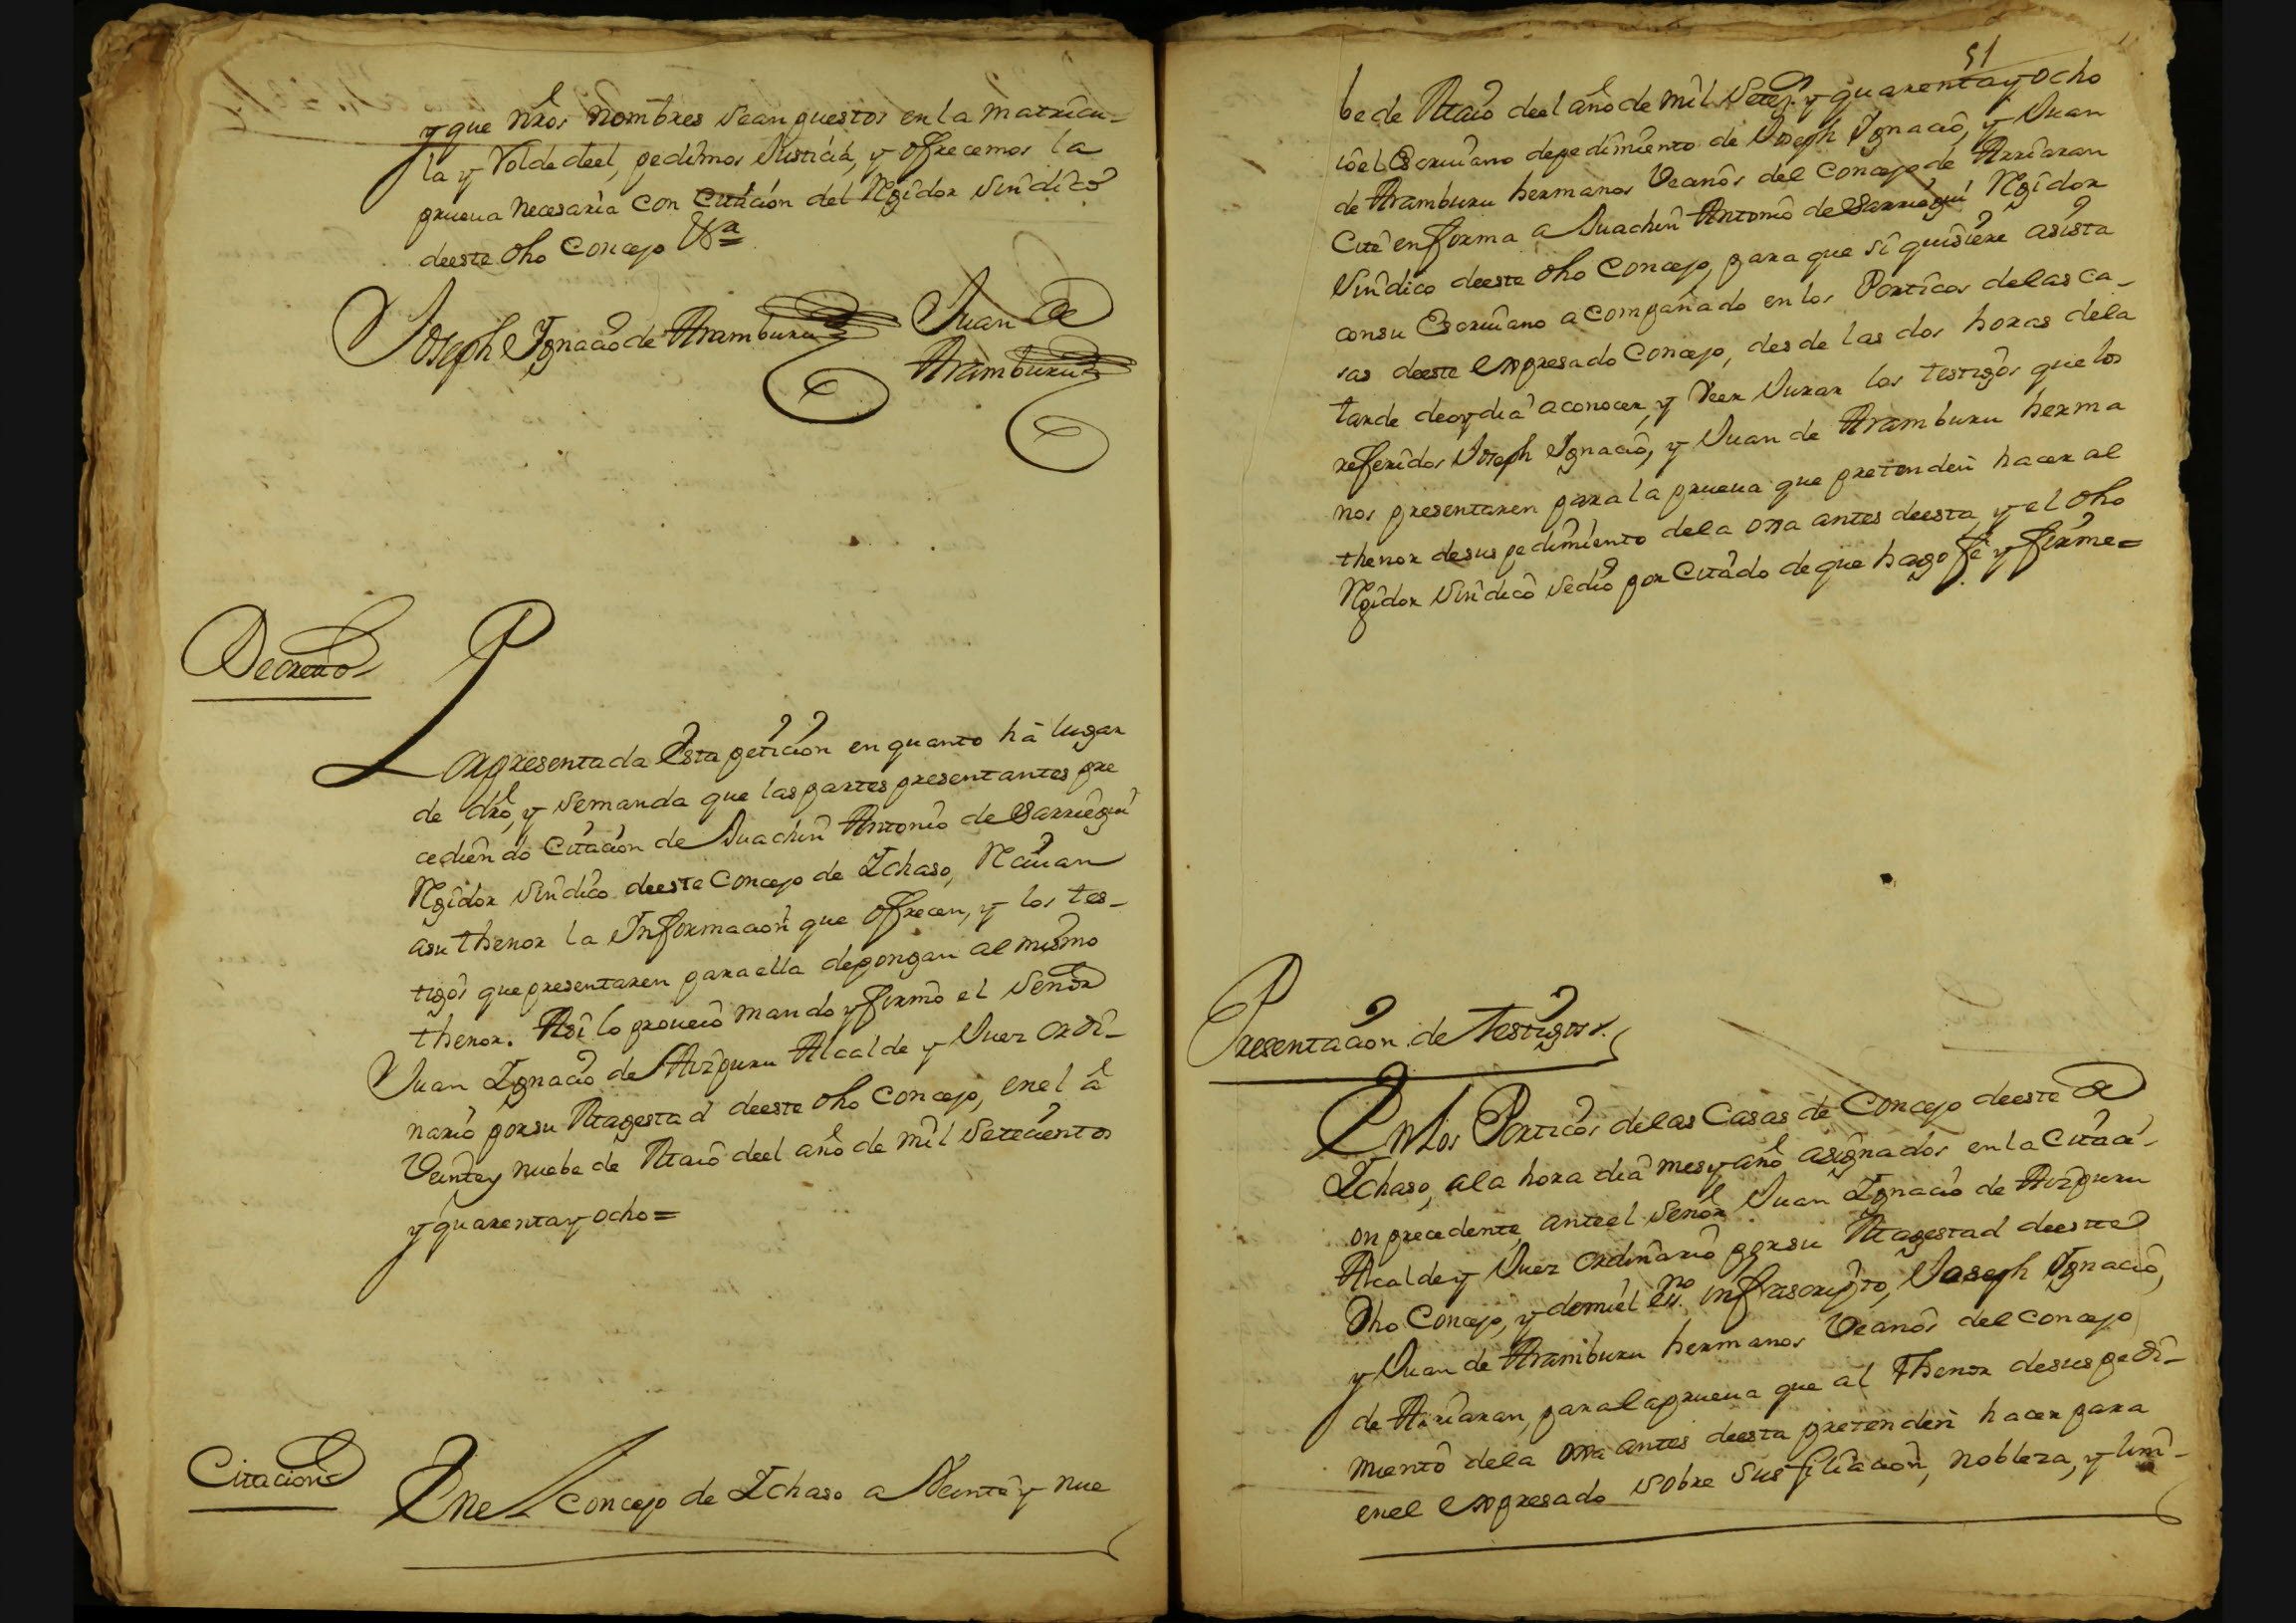 y que nr̃os nombres sean puestos en la matricu-
la y Rolde deel, pedimos Justicia, y ofrecemos la
prueua necesaria con Citacion del Rgidor sindico
deeste dho Concejo &ra=
Joseph Ignacio de Aramburu Juan de
Aramburu
Decreto
Por presentada Esta peticion en quanto há lugar
de dr̃o, y se manda que las partes presentantes pre
cediendo Citacion de Juachin Antonio de Sarriegui
Rgidor sindico deeste Concejo de Ichaso, Rciuan
asu thenor la Informacion que ofrecen, y los tes-
tigos que presentaren para ella depongan al mismo
thenor. Asi lo proueio mando y firmo el señor
Juan Ignacio de Aizpuru Alcalde y Juez ordi-
nario por su Magestad deeste dho Concejo, en el á
Veinte y nuebe de Maio deel año de mil setecientos
y quarenta y ocho=
Citacion
En el Concejo de Ichaso a Veinte y nue
51
be de Maio deel año de mil setez.s y quarenta y ocho
io el Escriuano de pedimiento de Joseph Ignacio, y Juan
de Aramburu hermanos Vecinos del Concejo de Arriaran
Cité en forma a Juachin Antonio de Sarriegui Rgidor
sindico deeste dho Concejo, para que si quisiere asista
con su Escriuano acompañado en los Porticos de las ca-
sas deeste expresado Concejo, desde las dos horas de la
tarde de oy dia a conocer, y Veer Jurar los testigos que los
referidos Joseph Ignacio, y Juan de Aramburu herma
nos presentaren para la prueua que pretenden hacer al
thenor de su pedimiento de la oja antes deesta, y el dho
Rgidor sindico se dio por Citado de que hago fé y firme=
Presentacion de Testigos.
En Los Porticos de las Casas de Concejo deeste de
Ichaso, a la hora dia mes y año asignados en la Citaci-
on precedente, ante el señor Juan Ignacio de Aizpuru
Alcalde y Juez ordinario por su Magestad deeste
dho Concejo, y de mi el ess.no infrascripto, Joseph Ignacio,
y Juan de Aramburu hermanos Vecinos del Concejo
de Arriaran, para la prueua que al thenor de su pedi-
miento de la oja antes deesta pretenden hacer para
en el expresado sobre sus filiacion, nobleza, y limi-